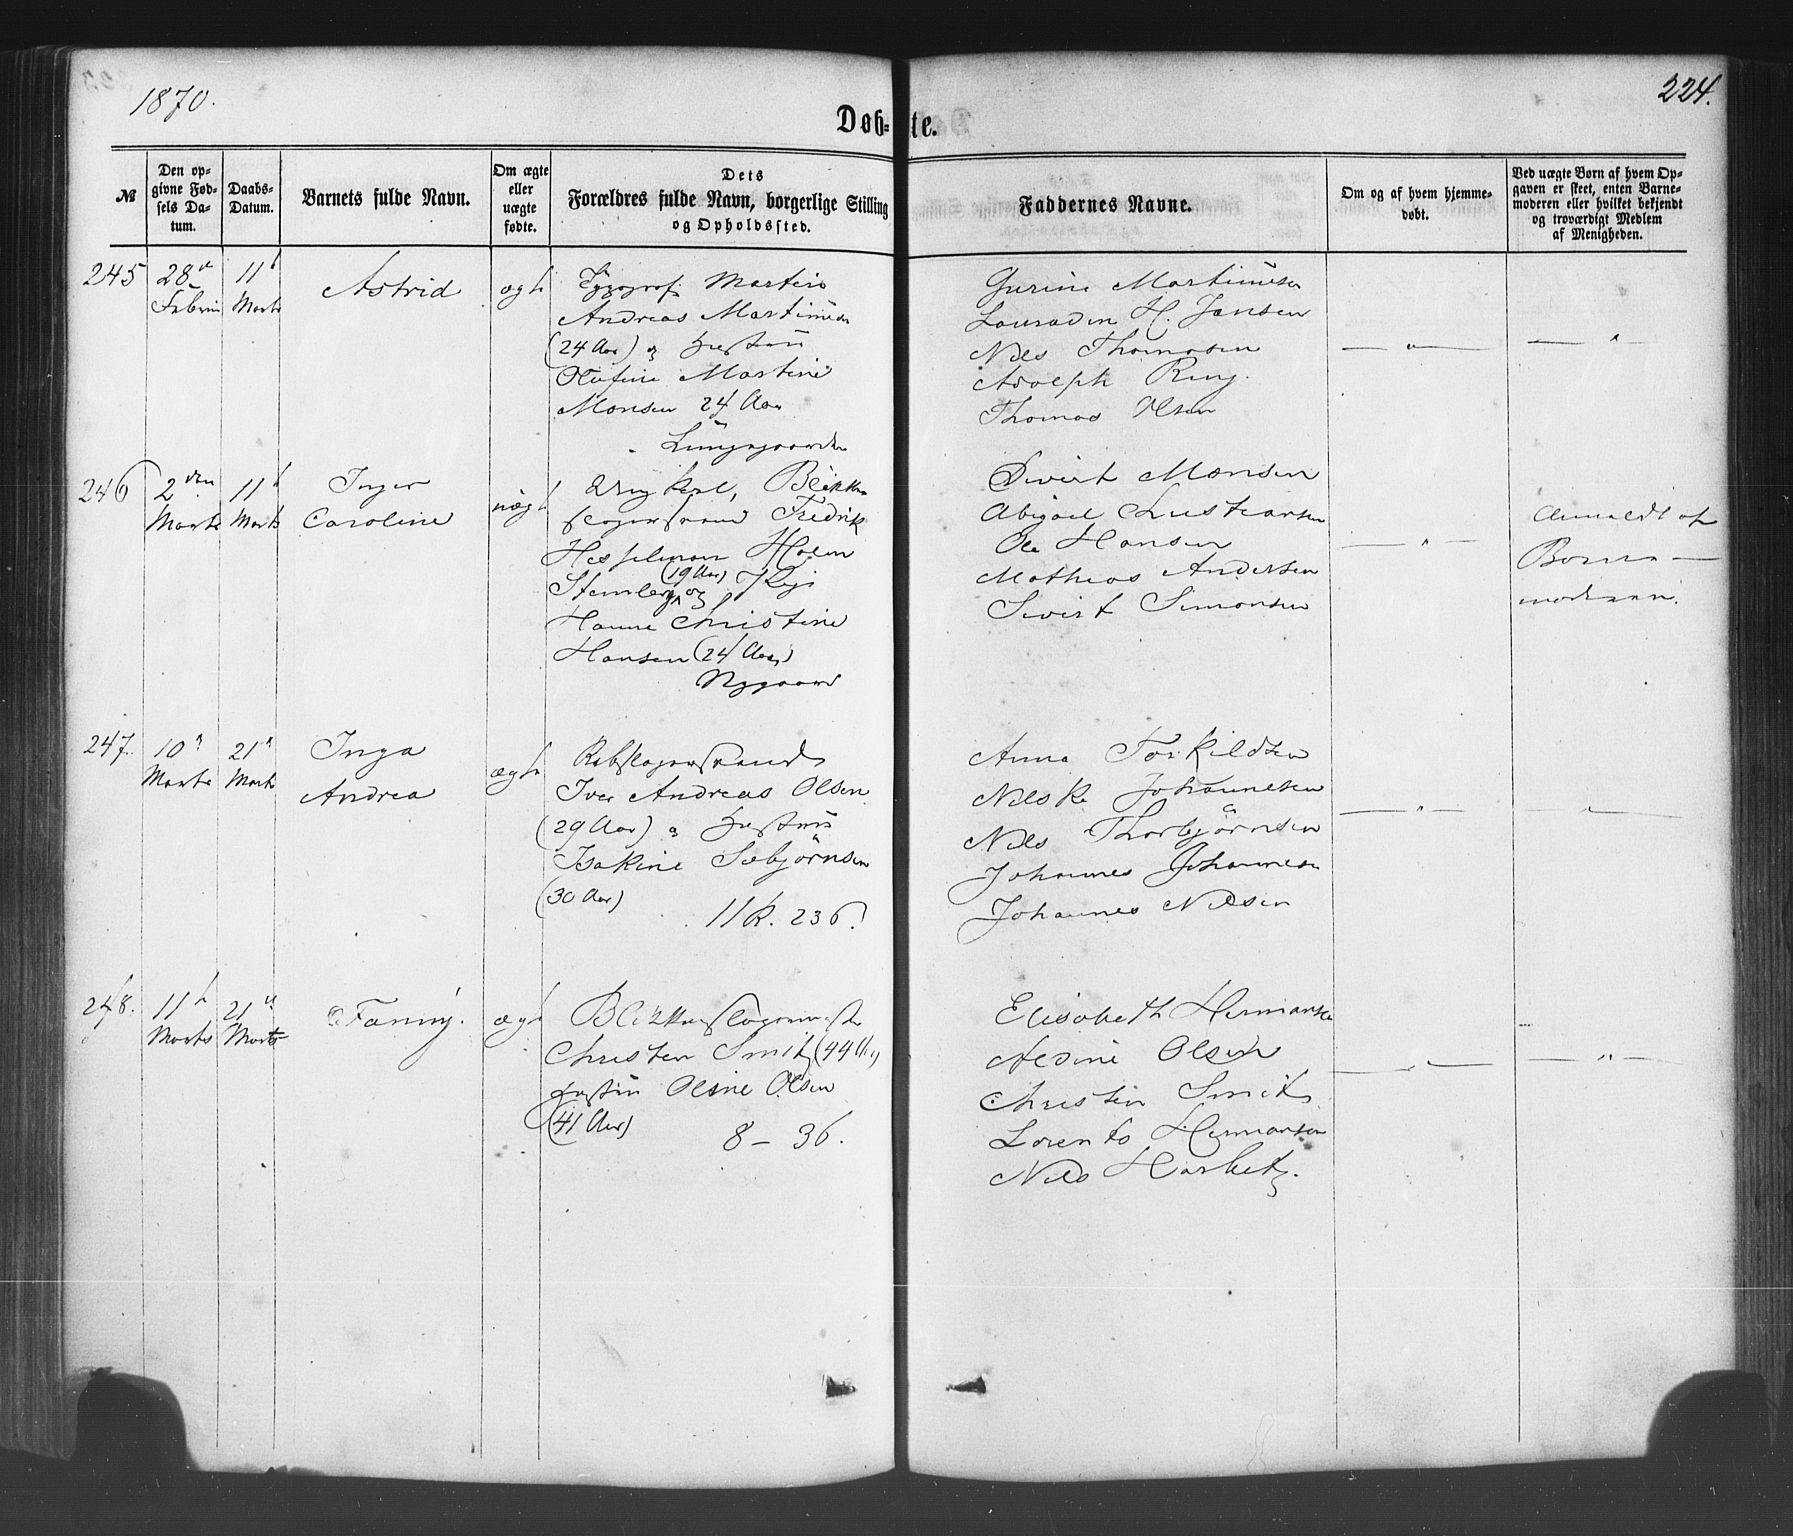 1870.
224.
Døb-te.
№
Den op-
givne Fød-
sels Da-
tum.
Daabs-
Datum.
Barnets fulde Navn.
Om ægte
eller
uægte
fødte.
Dets
Forældres fulde Navn, borgerlige Stilling
og Opholdssted.
Faddernes Navne.
Om og af hvem hjemme-
døbt.
Ved uægte Børn af hvem Op-
gaven er skeet, enten Barne-
moderen eller hvilket bekjendt
og troværdigt Medlem
af Menigheden.
245
28de
11te
Marts
Astrid
ægt
Typograf Martin
Andreas Martinusen
(24 Aar) og Hustru
Olufine Martine
Monsen 24 Aar
Lungegaarden
Gurine Martinusen
H. Jansen
Nils Thomasen
Adolph Ring
Thomas Olsen
246
2den
Marts
11te
Marts
Inger
Caroline
uægt
Ung Karl, Blikken
slagersvend Fredrik
Holm
(19 Aar)
og Pige
Hanne Christine
Hansen (24 Aar)
Nygaard
Sivert Monsen
Abigael
Ole Hansen
Mathias Andersen
Sivert Simonsen
Anmeldt af
Barne-
moderen.
247.
10de
Marts
21de
Marts
Inga
Andrea
ægte
Rebslagersvend
Iver Andreas Olsen
(29 Aar) og Hustru
Isakine Sebjörnsen
(30 Aar)
11 R. 236.
Anna Torkildsen
Johannesen
Nils Thorbjörnsen
Johannes Johannesen
Johannes Nilsen
248.
11te
Marts
21de
Marts
Fanny.
ægt
Blikkenslagermester
Christen Smit (44 Aar)
Hustru Olsine Olsen
(41 Aar)
8 - 36.
Elisabeth Hermansen
Aldine Olsen
Christen Smit
Lorents Hermansen
Nils